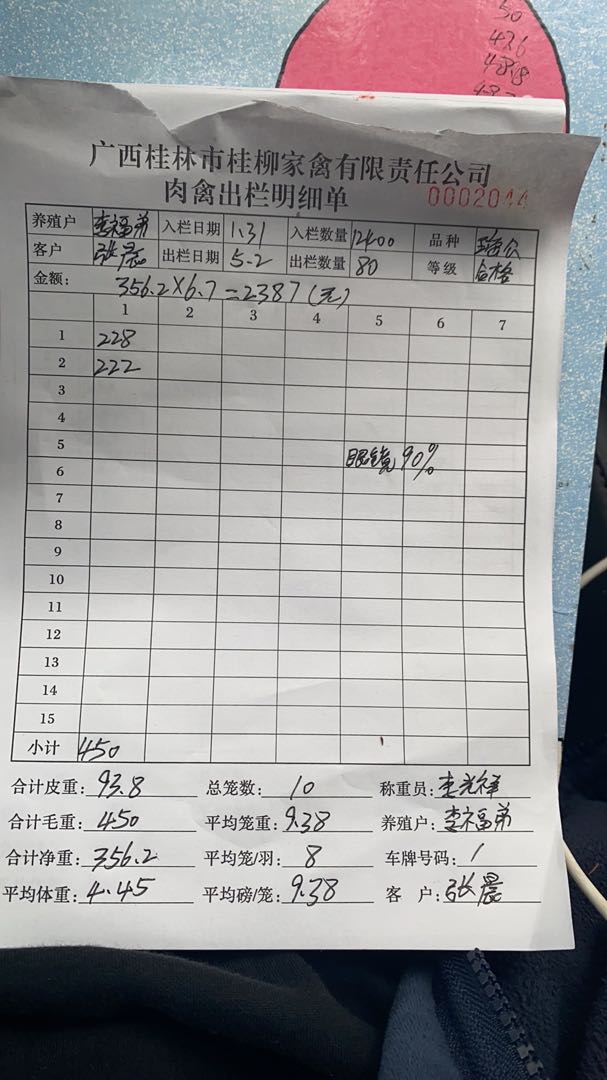 50
426
广西桂林市桂柳家禽有限责任公司
肉禽出栏明细单 0002044
养殖户 李福弟 入栏日期 1.31 入栏数量 12400 品种 瑶公
客户 张晨 出栏日期 5.2 出栏数量 80 等级 合格
金额: 356.2×6.7=2387(元)
1 2 3 4 5 6 7
1 228
2 222
3
4
5
眼镜 90%
6
7
8
9
10
11
12
13
14
15
小计 450
合计皮重: 93.8 总笼数: 10 称重员: 李光祥
合计毛重: 450 平均笼重: 9.38 养殖户: 李福弟
合计净重: 356.2 平均笼/羽: 8 车牌号码: /
平均体重: 4.45 平均磅/笼: 9.38 客 户: 张晨